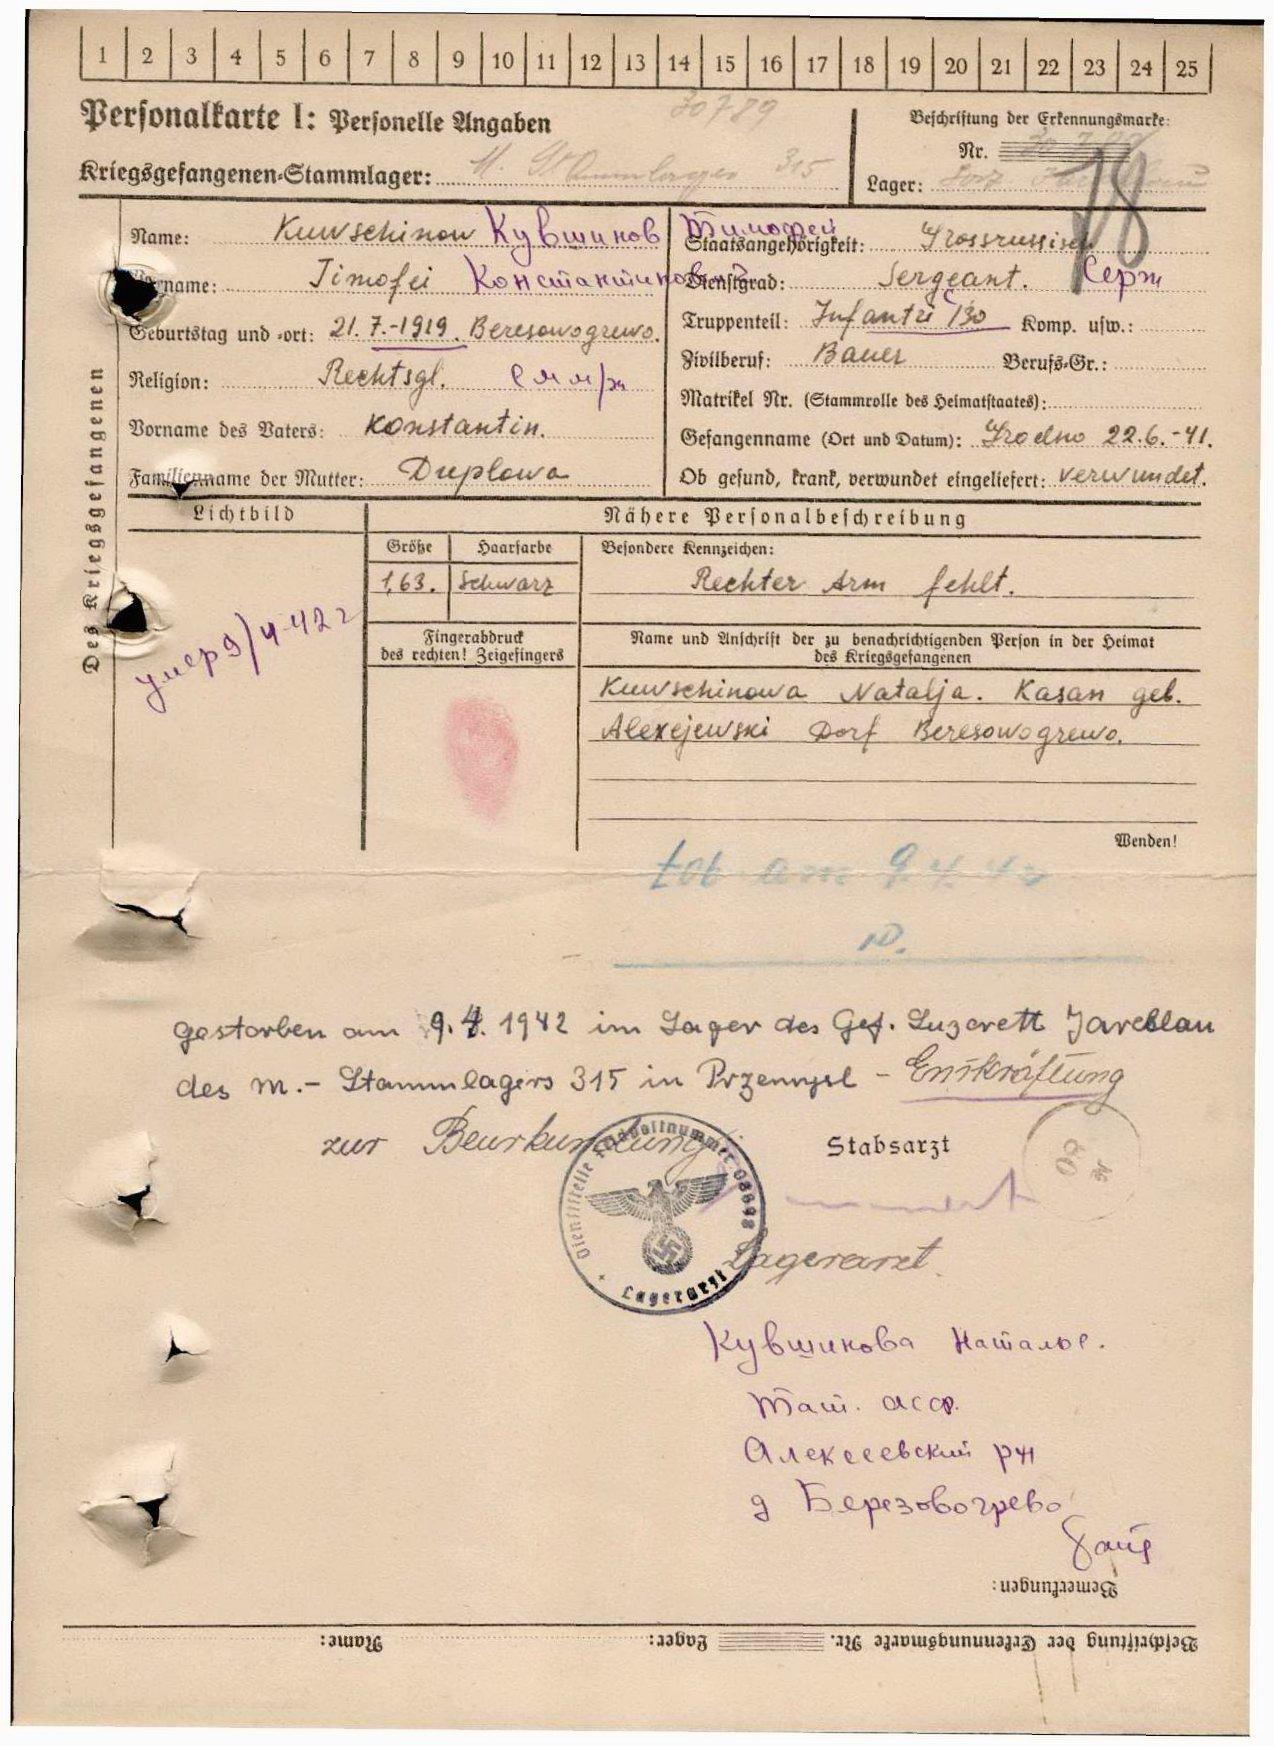 1 2 3 4 5 6 7 8 9 10 11 12 13 14 15 16 17 18 19 20 21 22 23 24 25
Personalkarte I: Personelle Angaben
30789
Beschriftung der Erkennungsmarke:
Nr.
Kriegsgefangenen-Stammlager: M. Stammlager 315
Lager:
Des Kriegsgefangenen
Name: Kuwschinow Кувшинов Тимофей
Vorname: Timofei Константинович
Geburtstag und -ort: 21.7.-1919. Beresowogrewo.
Religion: Rechtsgl.
Vorname des Vaters: Konstantin.
Familienname der Mutter: Duplowa
Staatsangehörigkeit: Grossrussisch
Dienstgrad: Sergeant. Серж
Truppenteil: Infantri 130 Komp. usw.:
Zivilberuf: Bauer Berufs-Gr.:
Matrikel Nr. (Stammrolle des Heimatstaates):
Gefangenname (Ort und Datum): Grodno 22.6.-41.
Ob gesund, krank, verwundet eingeliefert: verwundet.
Lichtbild
Nähere Personalbeschreibung
Größe Haarfarbe Besondere Kennzeichen:
1,63. Schwarz Rechter Arm fehlt.
умер 9/4-42 г
Fingerabdruck
des rechten! Zeigefingers
Name und Anschrift der zu benachrichtigenden Person in der Heimat
des Kriegsgefangenen
Kuwschinowa Natalja. Kasan geb.
Alexejewski Dorf Beresowogrewo.
Wenden!
tot am 9.4.42
gestorben am 9.4. 1942 im Lager des Gef. Lazarett Jareslau
des M.- Stammlagers 315 in Przemysl - Entkräftung
zur Beurkundung
Stabsarzt
Dienststelle Feldpostnummer
Lagerarzt
Lagerarzt.
Кувшинова Наталье.
Тат. асср.
Алексеевский р-н
д Березовогрево
Bemerkungen:
Beschriftung der Erkennungsmarke Nr. Lager: Name: